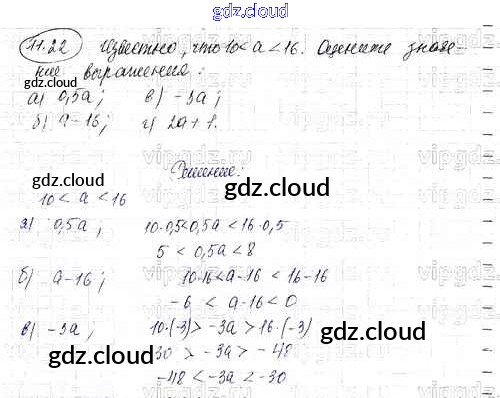 gdz.cloud
11.22 Известно, что 10 < a < 16. Оцените значе-
ние выражения:
а) 0,5a; в) -3a;
б) a-16; г) 2a+1.
Решение:
gdz.cloud
gdz.cloud
10 < a < 16
а) 0,5a; 10·0,5<0,5a<16·0,5
5 < 0,5a < 8
б) a-16; 10-16<a-16 < 16-16
-6 < a-16 < 0
в) -3a; 10·(-3) > -3a > 16·(-3)
gdz.cloud
gdz.cloud
-30 > -3a > -48
-48 < -3a < -30